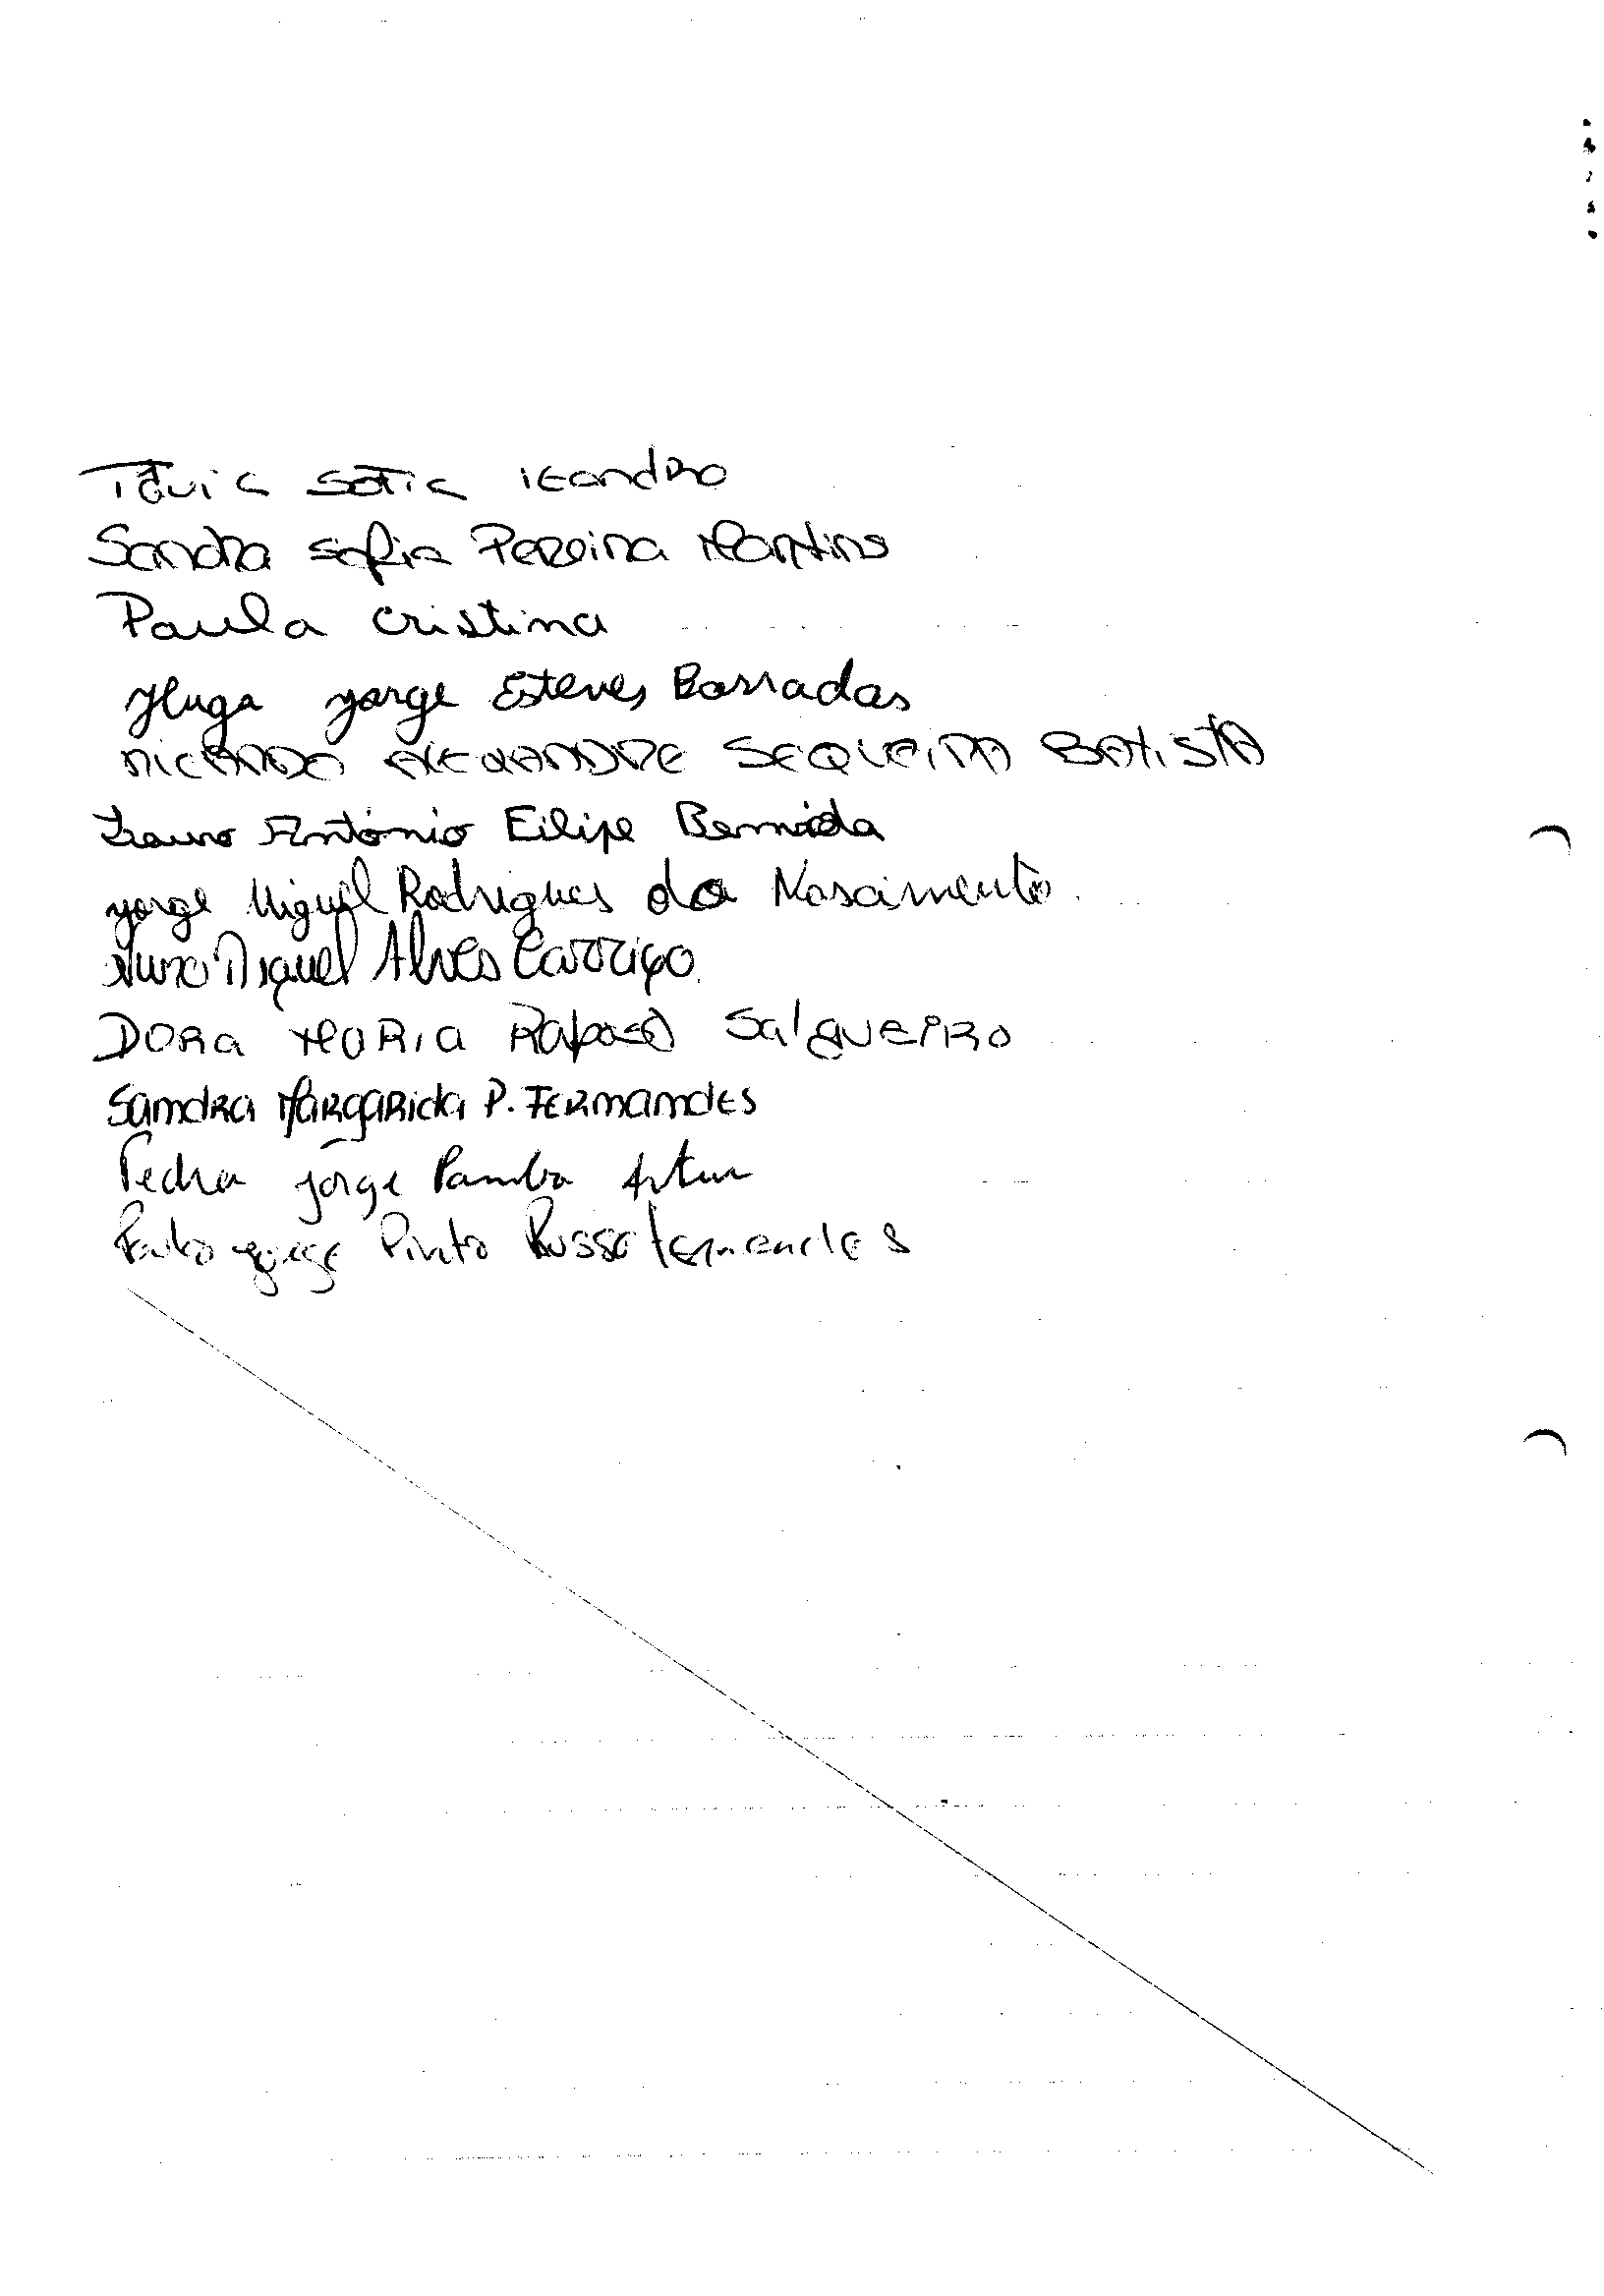 Sofia Leandro
Sandra Sofia Pereira Martins
Paula Cristina
Hugo Jorge Esteves Barradas
RICARDO ALEXANDRE SEQUEIRA BATISTA
António Filipe
Jorge Miguel Rodrigues do Nascimento.
Nuno Miguel Alves Carriço.
DORA MARIA Raposo SalgUEIRO
Sandra Margarida P. Fernandes
Pedro Jorge Artur
Paulo Jorge Pinto Russo Fernandes